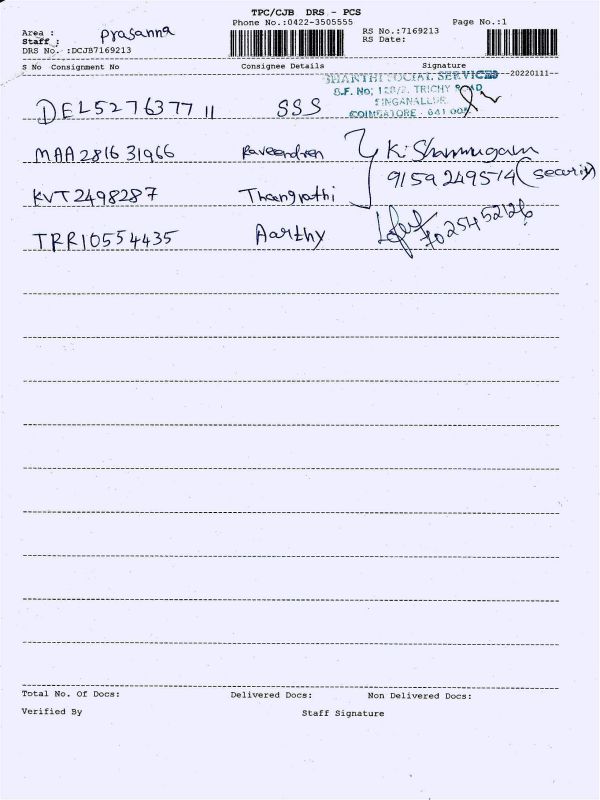 TPC/CJB DRS - PCS
Phone No.:0422-3505555 Page No.:1
Area : prasanna
Staff :
RS No.:7169213
DRS No. :DCJB7169213 RS Date:
S No Consignment No Consignee Details Signature
20220111
SHANTHI SOCIAL SERVICES
S.F. No; TRICHY ROAD
SINGANALLUR
COIMBATORE - 641 005
DEL527637711 SSS
MAA281631966 Raveendren K. Shanmugam
9159249514 (security)
KVT2498287 Thangrathi
TRR10554435 Aarthy
7025452126
Total No. Of Docs: Delivered Docs: Non Delivered Docs:
Verified By Staff Signature